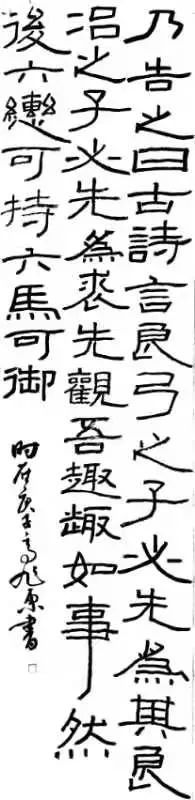 乃告之曰古詩言良弓之子必先為其良
冶之子必先為裘先觀吾趣趣如事然
後六轡可持六馬可御
时在庚子 書